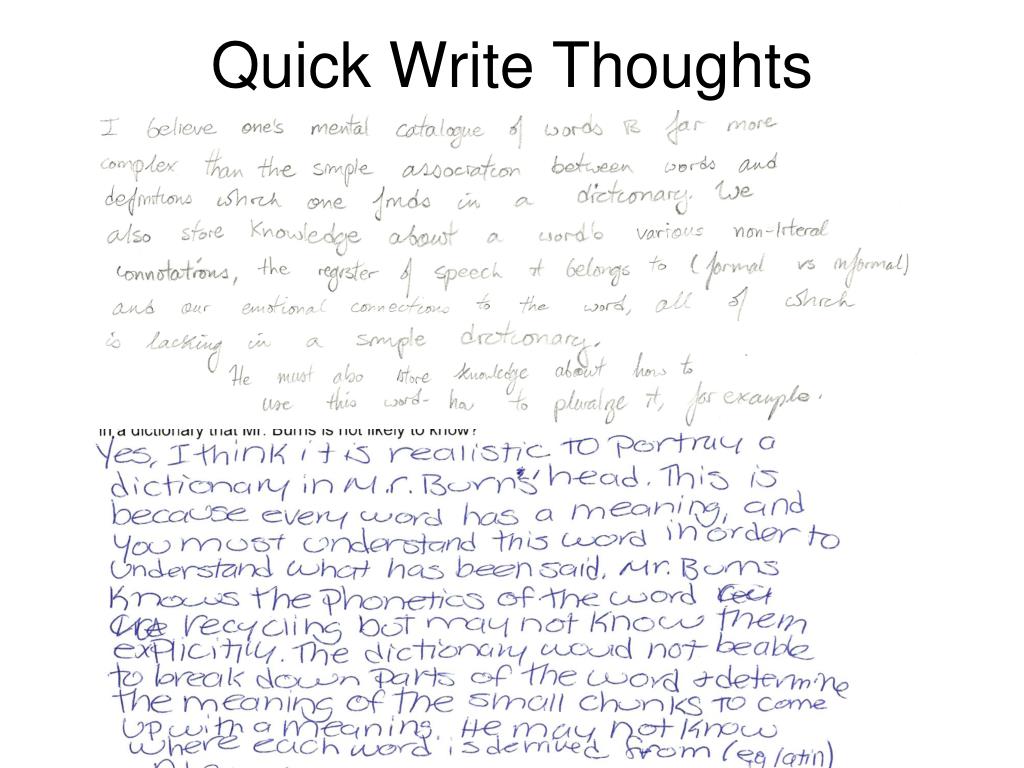 Quick Write Thoughts
I believe one's mental catalogue of words is far more
complex than the simple association between words and
definitions which one finds in a dictionary. We
also store knowledge about a word's various non-literal
connotations, the register of speech it belongs to (formal vs informal)
and our emotional connections to the word, all of which
is lacking in a simple dictionary.
He must also store knowledge about how to
use this word- how to pluralize it, for example.
in a dictionary that Mr. Burns is not likely to know?
Yes, I think it is realistic to portray a
dictionary in M.r. Burns' head. This is
because every word has a meaning, and
you must understand this word in order to
understand what has been said. Mr. Burns
knows the phonetics of the word
recycling but may not know them
explicitily. The dictionary would not beable
to break down parts of the word + determine
the meaning of the small chunks to come
up with a meaning. He may not know
where each word is derived from (eg latin)